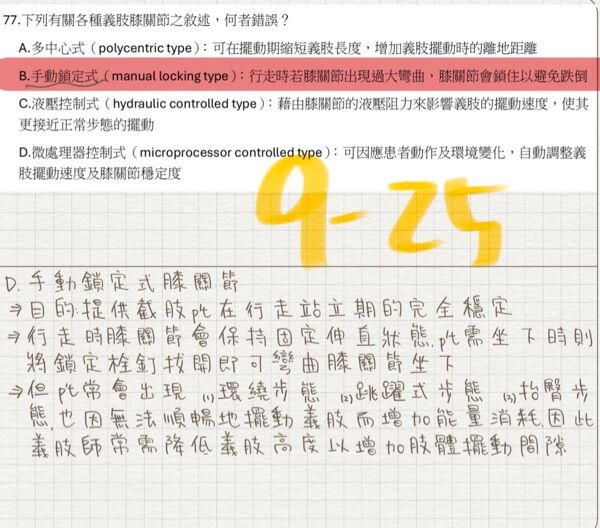 77.下列有關各種義肢膝關節之敘述，何者錯誤？
A.多中心式（polycentric type）：可在擺動期縮短義肢長度，增加義肢擺動時的離地距離
B.手動鎖定式（manual locking type）：行走時若膝關節出現過大彎曲，膝關節會鎖住以避免跌倒
C.液壓控制式（hydraulic controlled type）：藉由膝關節的液壓阻力來影響義肢的擺動速度，使其
更接近正常步態的擺動
D.微處理器控制式（microprocessor controlled type）：可因應患者動作及環境變化，自動調整義
肢擺動速度及膝關節穩定度
9-25
D. 手動鎖定式膝關節
⇒目的:提供截肢pt在行走站立期的完全穩定
⇒行走時膝關節會保持固定伸直狀態,pt需坐下時則
將鎖定栓釘拔開即可彎曲膝關節坐下
⇒但pt常會出現 (1)環繞步態 (2)跳躍式步態 (3)抬臀步
態,也因無法順暢地擺動義肢而增加能量消耗,因此
義肢師常需降低義肢高度以增加肢體擺動間隙